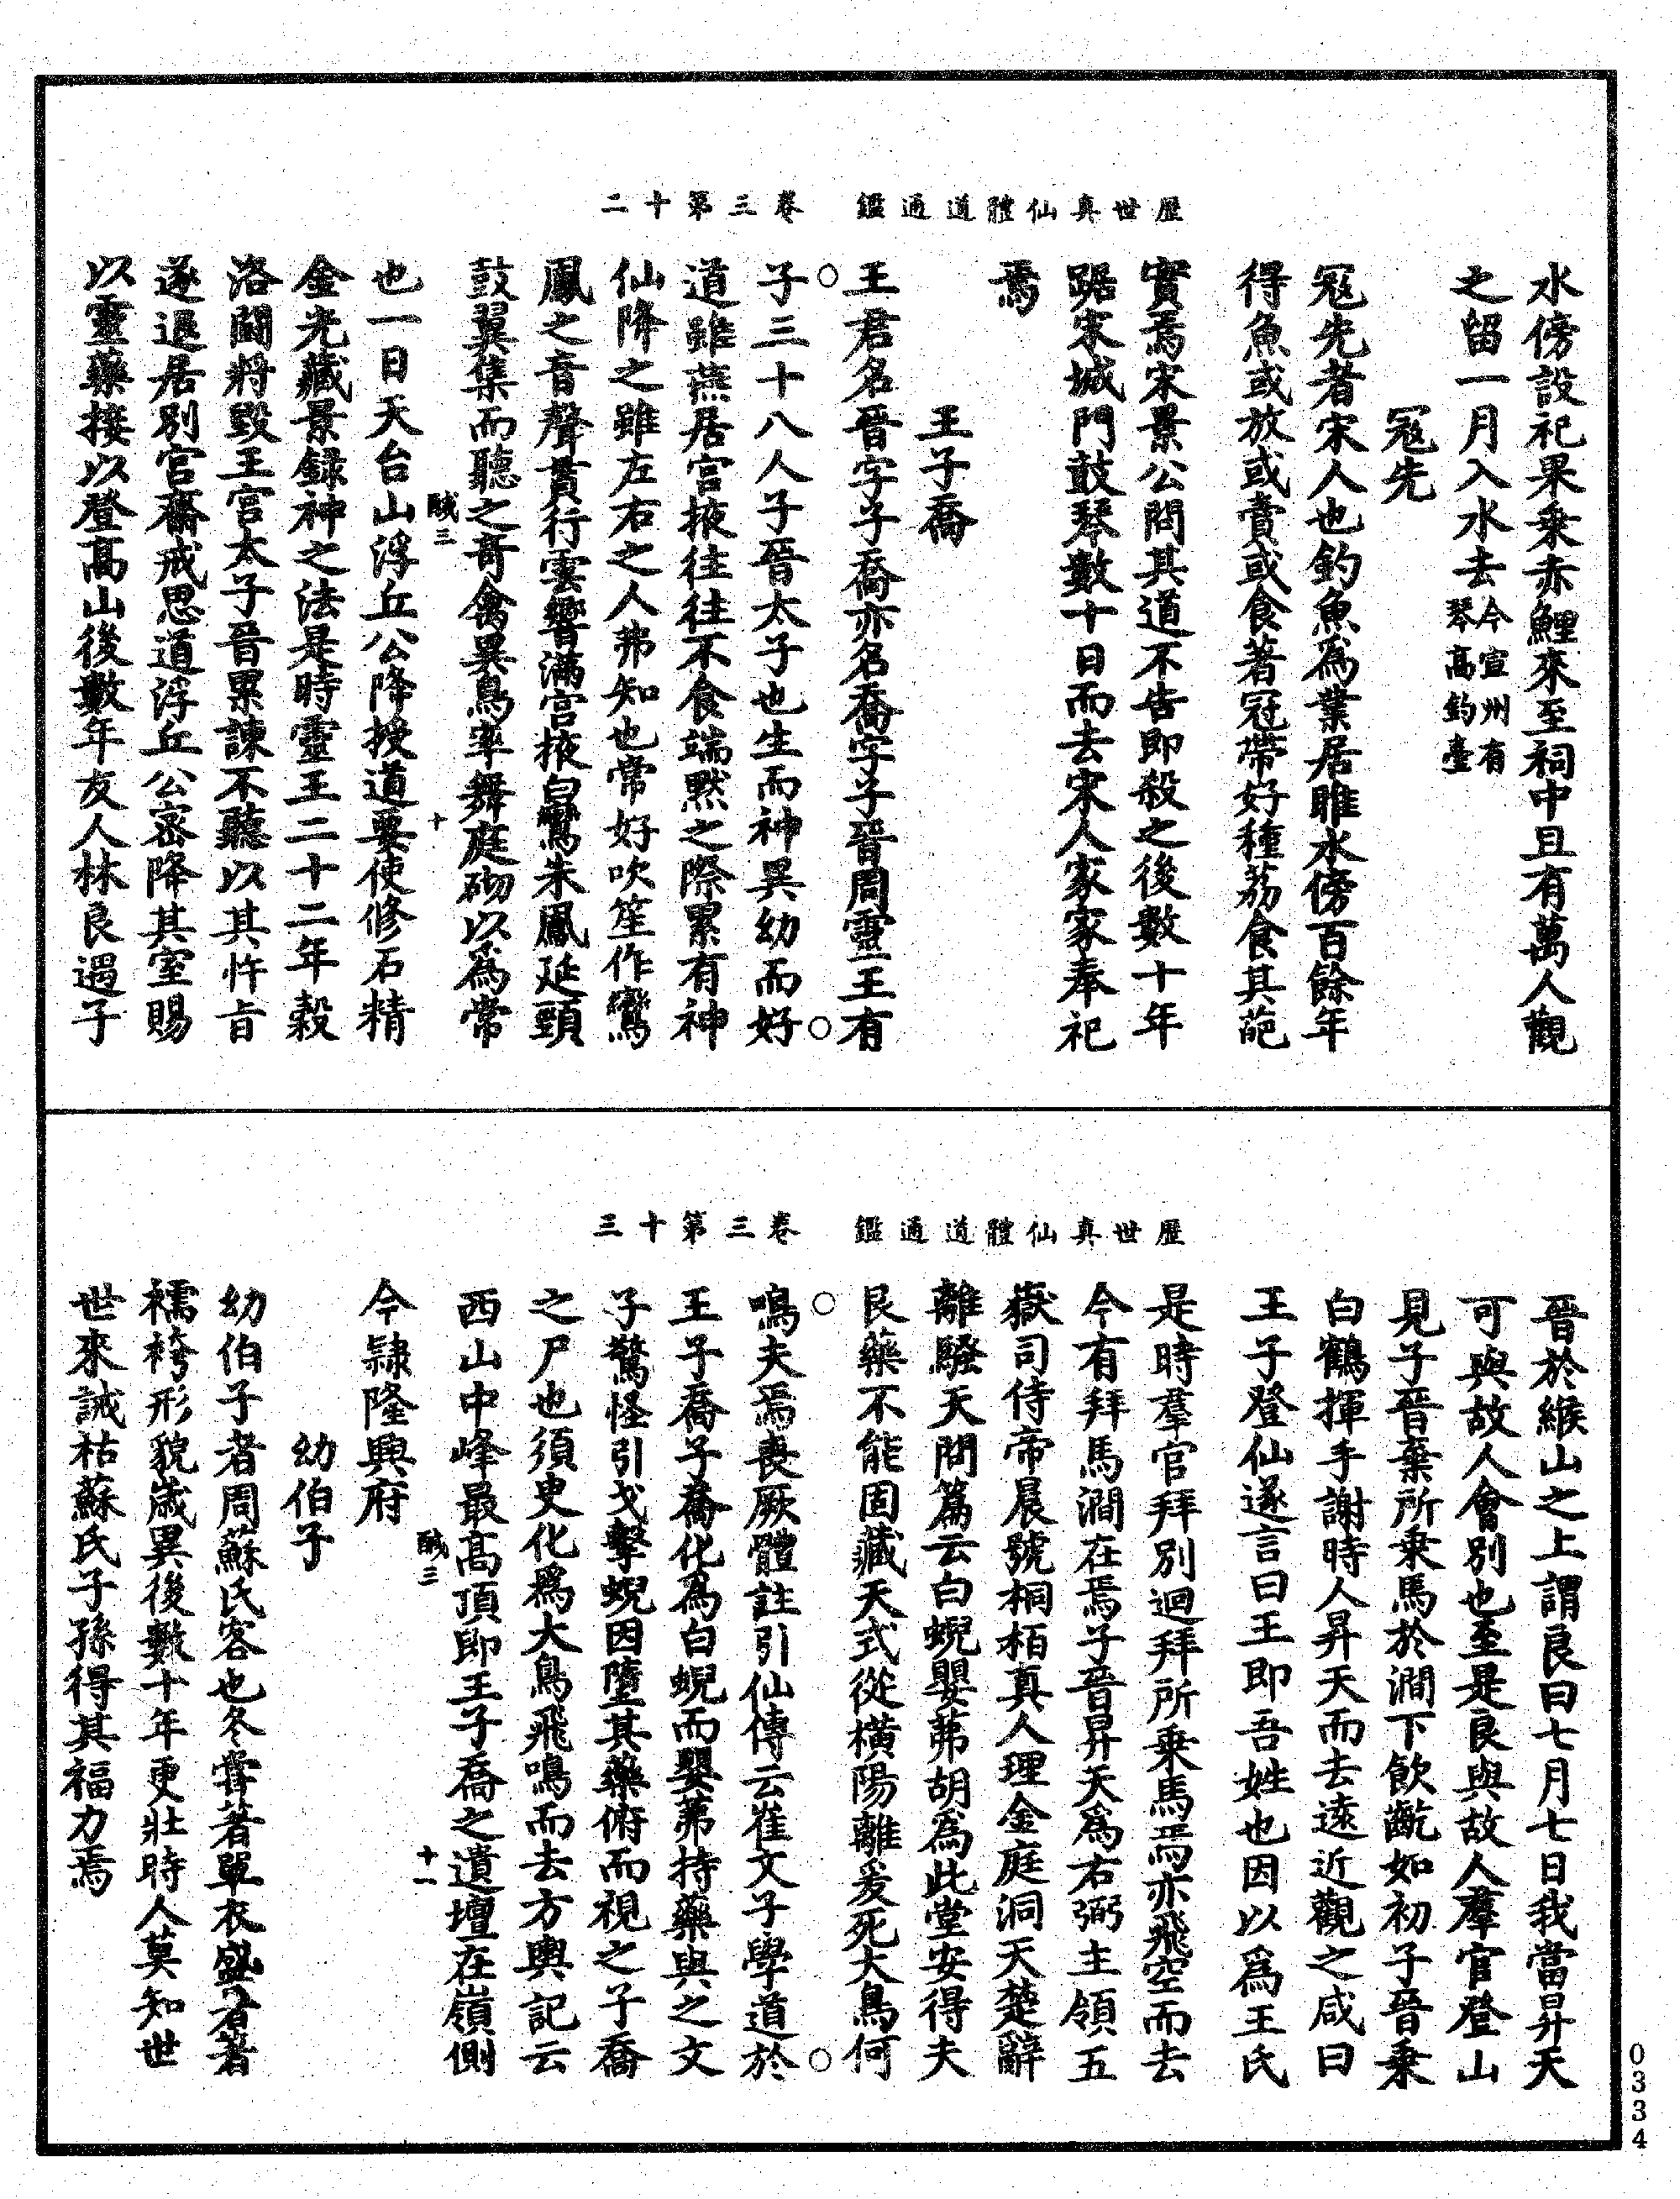 歷世真仙體道通鑑　卷三第十二
水傍設祀果乘赤鯉來至祠中且有萬人觀
之留一月入水去今宣州有琴高釣臺
冦先
冦先者宋人也釣魚爲業居睢水傍百餘年
得魚或放或賣或食著冠帶好種荔食其葩
實焉宋景公問其道不告即殺之後數十年
踞宋城門鼓琴數十日而去宋人家家奉祀
焉
王子喬
王君名晉字子喬亦名喬字子晉周靈王有
子三十八人子晉太子也生而神異幼而好
道雖燕居宫掖往往不食端默之際累有神
仙降之雖左右之人弗知也常好吹笙作鸞
鳳之音聲貫行雲響滿宫掖白鸞朱鳳延頸
鼓翼集而聽之竒禽異鳥率舞庭砌以爲常
鹹三　十
也一日天台山浮丘公降授道要使修石精
金光藏景録神之法是時靈王二十二年穀
洛鬭將毀王宫太子晉累諫不聽以其忤旨
遂退居別宫齋戒思道浮丘公宻降其室賜
以靈藥接以登髙山後數年友人林良遇子
歷世真仙體道通鑑　卷三第十三
晉於緱山之上謂良曰七月七日我當昇天
可與故人會別也至是良與故人羣官登山
見子晉棄所乘馬於澗下飲齕如初子晉乘
白鶴揮手謝時人昇天而去遠近觀之咸曰
王子登仙遂言曰王即吾姓也因以爲王氏
是時羣官拜別迴拜所乘馬焉亦飛空而去
今有拜馬澗在焉子晉昇天爲右弼主領五
嶽司侍帝晨號桐栢真人理金庭洞天楚辭
離騷天問篇云白蜺嬰茀胡爲此堂安得夫
良藥不能固藏天式從横陽離爰死大鳥何
鳴夫焉喪厥體註引仙傳云崔文子學道於
王子喬子喬化爲白蜺而嬰茀持藥與之文
子驚怪引戈擊蜺因墮其藥俯而視之子喬
之尸也須臾化爲大鳥飛鳴而去方輿記云
西山中峰最髙頂即王子喬之遺壇在嶺側
鹹三　十一
今隷隆興府
幼伯子
幼伯子者周蘇氏客也冬常著單衣盛暑著
襦袴形貌歲異後數十年更壯時人莫知世
世來誡枯蘇氏子孫得其福力焉
0334